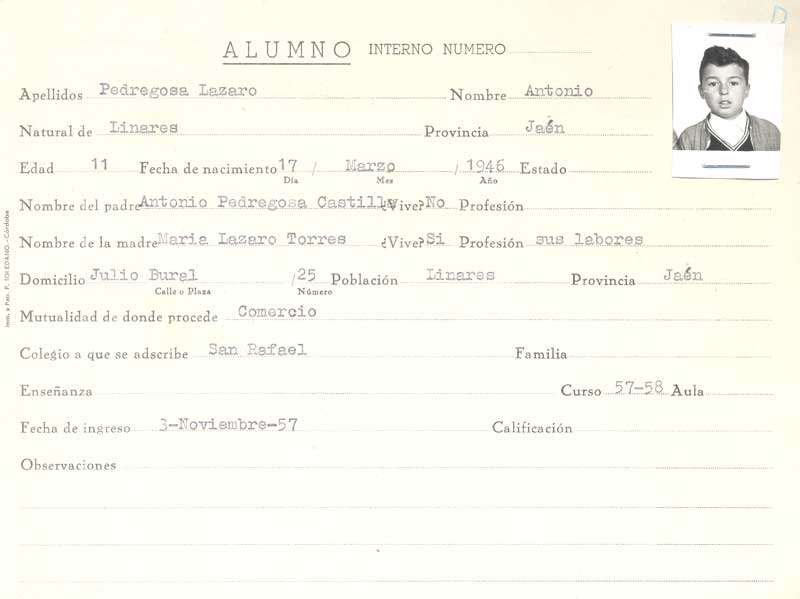 ALUMNO INTERNO NUMERO
Apellidos Pedregosa Lazaro Nombre Antonio
Natural de Linares Provincia Jaén
Edad 11 Fecha de nacimiento 17 / Marzo / 1946 Estado
Día Mes Año
Nombre del padre Antonio Pedregosa Castilla ¿Vive? No Profesión
Nombre de la madre Maria Lazaro Torres ¿Vive? Si Profesión sus labores
Domicilio Julio Burel /25 Población Linares Provincia Jaén
Calle o Plaza Número
Mutualidad de donde procede Comercio
Colegio a que se adscribe San Rafael Familia
Enseñanza Curso 57-58 Aula
Fecha de ingreso 3-Noviembre-57 Calificación
Observaciones
Imp. y Pap. F. TOLEDANO.-Córdoba